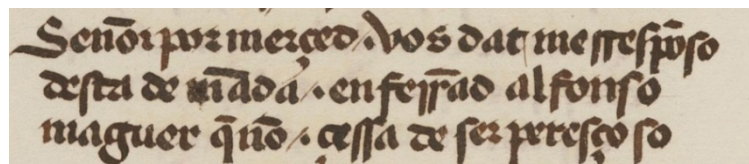 Señor por merçed / vos dat me rrespõso
desta de mãda / en ferrãd alfonso
maguer q̃ nõ / çessa de ser peresçoso